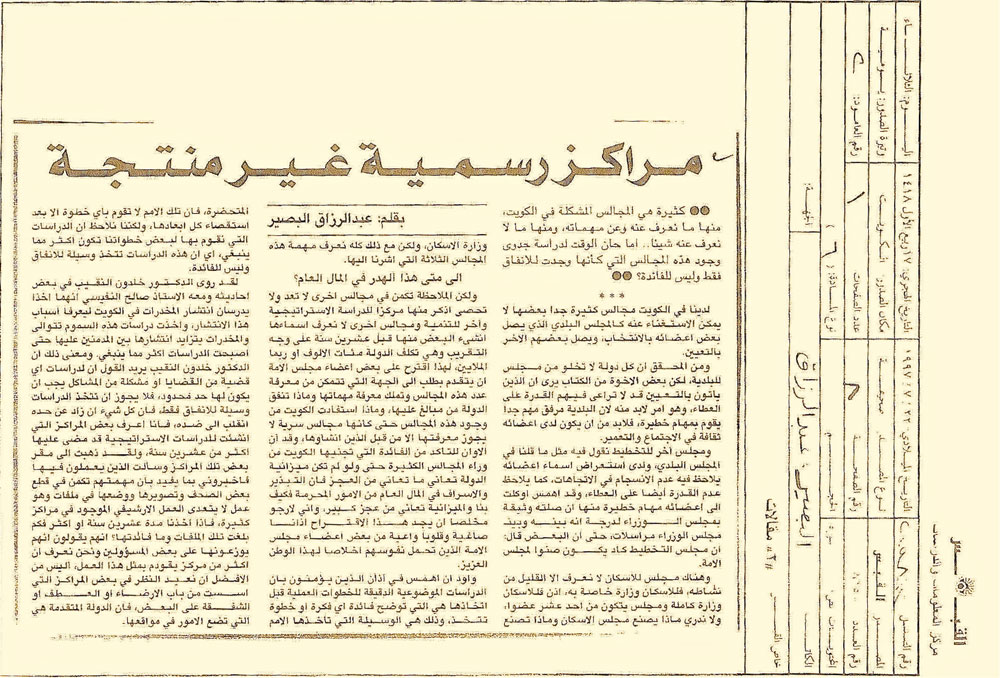 مراكز رسمية غير منتجة
بقلم: عبدالرزاق البصير
كثيرة هي المجالس المشكلة في الكويت،
منها ما نعرف عنه وعن مهماته، ومنها ما لا
نعرف عنه شيئا.. اما حان الوقت لدراسة جدوى
وجود هذه المجالس التي كأنها وجدت للانفاق
فقط وليس للفائدة؟
* * *
لدينا في الكويت مجالس كثيرة جدا بعضها لا
يمكن الاستغناء عنه كالمجلس البلدي الذي يصل
بعض اعضائه بالانتخاب، ويصل بعضهم الآخر
بالتعيين.
ومن المحقق ان كل دولة لا تخلو من مجلس
للبلدية، لكن بعض الاخوة من الكتاب يرى ان الذين
يأتون بالتعيين قد لا تراعى فيهم القدرة على
العطاء، وهو امر لابد منه لان البلدية مرفق مهم جدا
يقوم بمهام خطيرة، فلابد من ان يكون لدى اعضائه
ثقافة في الاجتماع والتعمير.
ومجلس آخر للتخطيط نقول فيه مثل ما قلنا في
المجلس البلدي، ولدى استعراض اسماء اعضائه
يلاحظ فيه عدم الانسجام في الاتجاهات، كما يلاحظ
عدم القدرة ايضا على العطاء، وقد اهمس اوكلت
الى اعضائه مهام خطيرة منها ان صلته وثيقة
بمجلس الوزراء لدرجة انه بينه وبين
مجلس الوزراء مراسلات، حتى أن البعض قال:
ان مجلس التخطيط كاد يكون صنوا لمجلس
الامة.
وهناك مجلس للاسكان لا نعرف الا القليل من
نشاطه، فللاسكان وزارة خاصة به، اذن فللاسكان
وزارة كاملة ومجلس يتكون من احد عشر عضوا،
ولا ندري ماذا يصنع مجلس الاسكان وماذا تصنع
وزارة الاسكان، ولكن مع ذلك كله نعرف مهمة هذه
المجالس الثلاثة التي اشرنا اليها.
الى متى هذا الهدر في المال العام؟
ولكن الملاحظة تكمن في مجالس اخرى لا تعد ولا
تحصى اذكر منها مركزا للدراسة الاستراتيجية
وآخر للتنمية ومجالس اخرى لا نعرف اسماءها
انشىء البعض منها قبل عشرين سنة على وجه
التقريب وهي تكلف الدولة مئات الالوف او ربما
الملايين، لهذا اقترح على بعض اعضاء مجلس الامة
ان يتقدم بطلب الى الجهة التي تتمكن من معرفة
عدد هذه المجالس وتملك معرفة مهماتها وماذا تنفق
الدولة من مبالغ عليها، وماذا استفادت الكويت من
وجود هذه المجالس حتى كأنها مجالس سرية لا
يجوز معرفتها الا من قبل الذين انشأوها، وقد آن
الاوان للتأكد من الفائدة التي تجنيها الكويت من
وراء المجالس الكثيرة حتى ولو لم تكن ميزانية
الدولة تعاني ما تعاني من العجز فان التبذير
والاسراف في المال العام من الامور المحرمة فكيف
بنا والميزانية تعاني من عجز كبير، واني لارجو
مخلصا ان يجد هذا الاقتراح آذانا
صاغية وقلوبا واعية من بعض اعضاء مجلس
الامة الذين تحمل نفوسهم اخلاصا لهذا الوطن
العزيز.
واود ان اهمس في آذان الذين يؤمنون بان
الدراسات الموضوعية الدقيقة للخطوات العملية قبل
اتخاذها هي التي توضح فائدة اي فكرة او خطوة
تتخذ، وذلك هي الوسيلة التي تأخذها الامم
المتحضرة، فان تلك الامم لا تقوم بأي خطوة الا بعد
استقصاء كل ابعادها، ولكننا نلاحظ ان الدراسات
التي نقوم بها لبعض خطواتنا تكون اكثر مما
ينبغي، اي ان هذه الدراسات تتخذ وسيلة للانفاق
وليس للفائدة.
لقد روى الدكتور خلدون النقيب في بعض
احاديثه ومعه الاستاذ صالح النفيسي انهما اخذا
يدرسان انتشار المخدرات في الكويت ليعرفا اسباب
هذا الانتشار، واخذت دراسات هذه السموم تتوالى
والمخدرات يتزايد انتشارها بين المدمنين عليها حتى
أصبحت الدراسات اكثر مما ينبغي، ومعنى ذلك ان
الدكتور خلدون النقيب يريد القول ان لدراسات اي
قضية من القضايا او مشكلة من المشاكل يجب ان
يكون لها حد محدود، فلا يجوز ان تتخذ الدراسات
وسيلة للانفاق فقط، فان كل شيء ان زاد عن حده
انقلب الى ضده، فأنا اعرف بعض المراكز التي
انشئت للدراسات الاستراتيجية قد مضى عليها
اكثر من عشرين سنة، ولقد ذهبت الى مقر
بعض تلك المراكز وسألت الذين يعملون فيها
فاخبروني بما يفيد بأن مهمتهم تكمن في قطع
بعض الصحف وتصويرها ووضعها في ملفات وهو
عمل لا يتعدى العمل الارشيفي الموجود في مراكز
كثيرة، فاذا اخذنا مدة عشرين سنة او اكثر فكم
بلغت تلك الملفات وما فائدتها؟ انهم يقولون انهم
يوزعونها على بعض المسؤولين ونحن نعرف ان
اكثر من مركز يقوم بمثل هذا العمل، أليس من
الافضل ان نعيد النظر في بعض المراكز التي
اسست من باب الارضاء او العطف او
الشفقة على البعض، فان الدولة المتقدمة هي
التي تضع الامور في مواقعها.
القبس
مركز المعلومات والدراسات
اليوم: الثلاثاء
التاريخ الهجري: ١٧ ربيع الأول ١٤١٨
التاريخ الميلادي: ١٩٩٧/٧/٢٢
رقم التسلسل
وتيرة الصدور: يومية
مكان الصدور: الكويت
المصدر: القبس
رقم العامود:
عدد الصفحات
رقم الصفحة
رقم العدد
نوع المادة:
الحجم
صورة
نص
الجهة:
الكاتب: البصير، عبدالرزاق
خاص القبس
"٢" مقالات